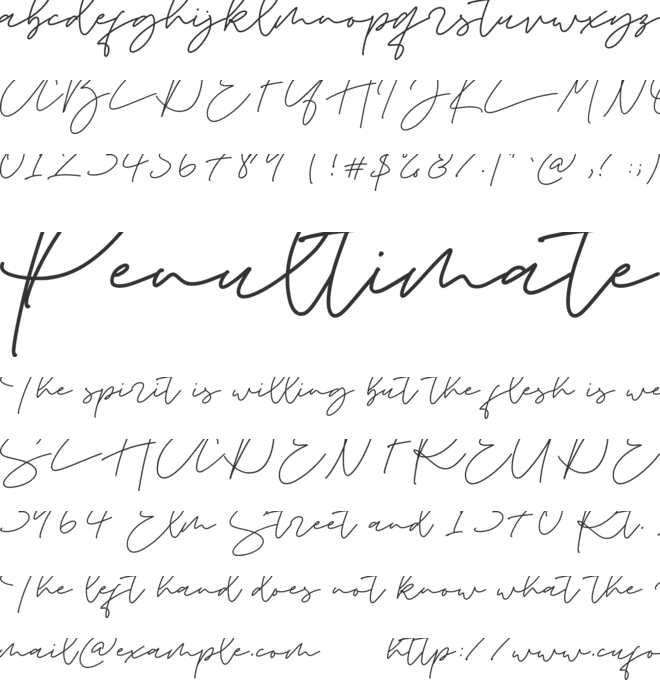 abcdefghijklmnopqrstuvwxyz
ABCDEFGHIJKLMN
0123456789 (!#$%&/.|"'@,?:;)
Penultimate
The spirit is willing but the flesh is we
SCHADENFREUDE
3964 Elm Street and 1370 Rt.
The left hand does not know what the
mail@example.com http://www.cufo